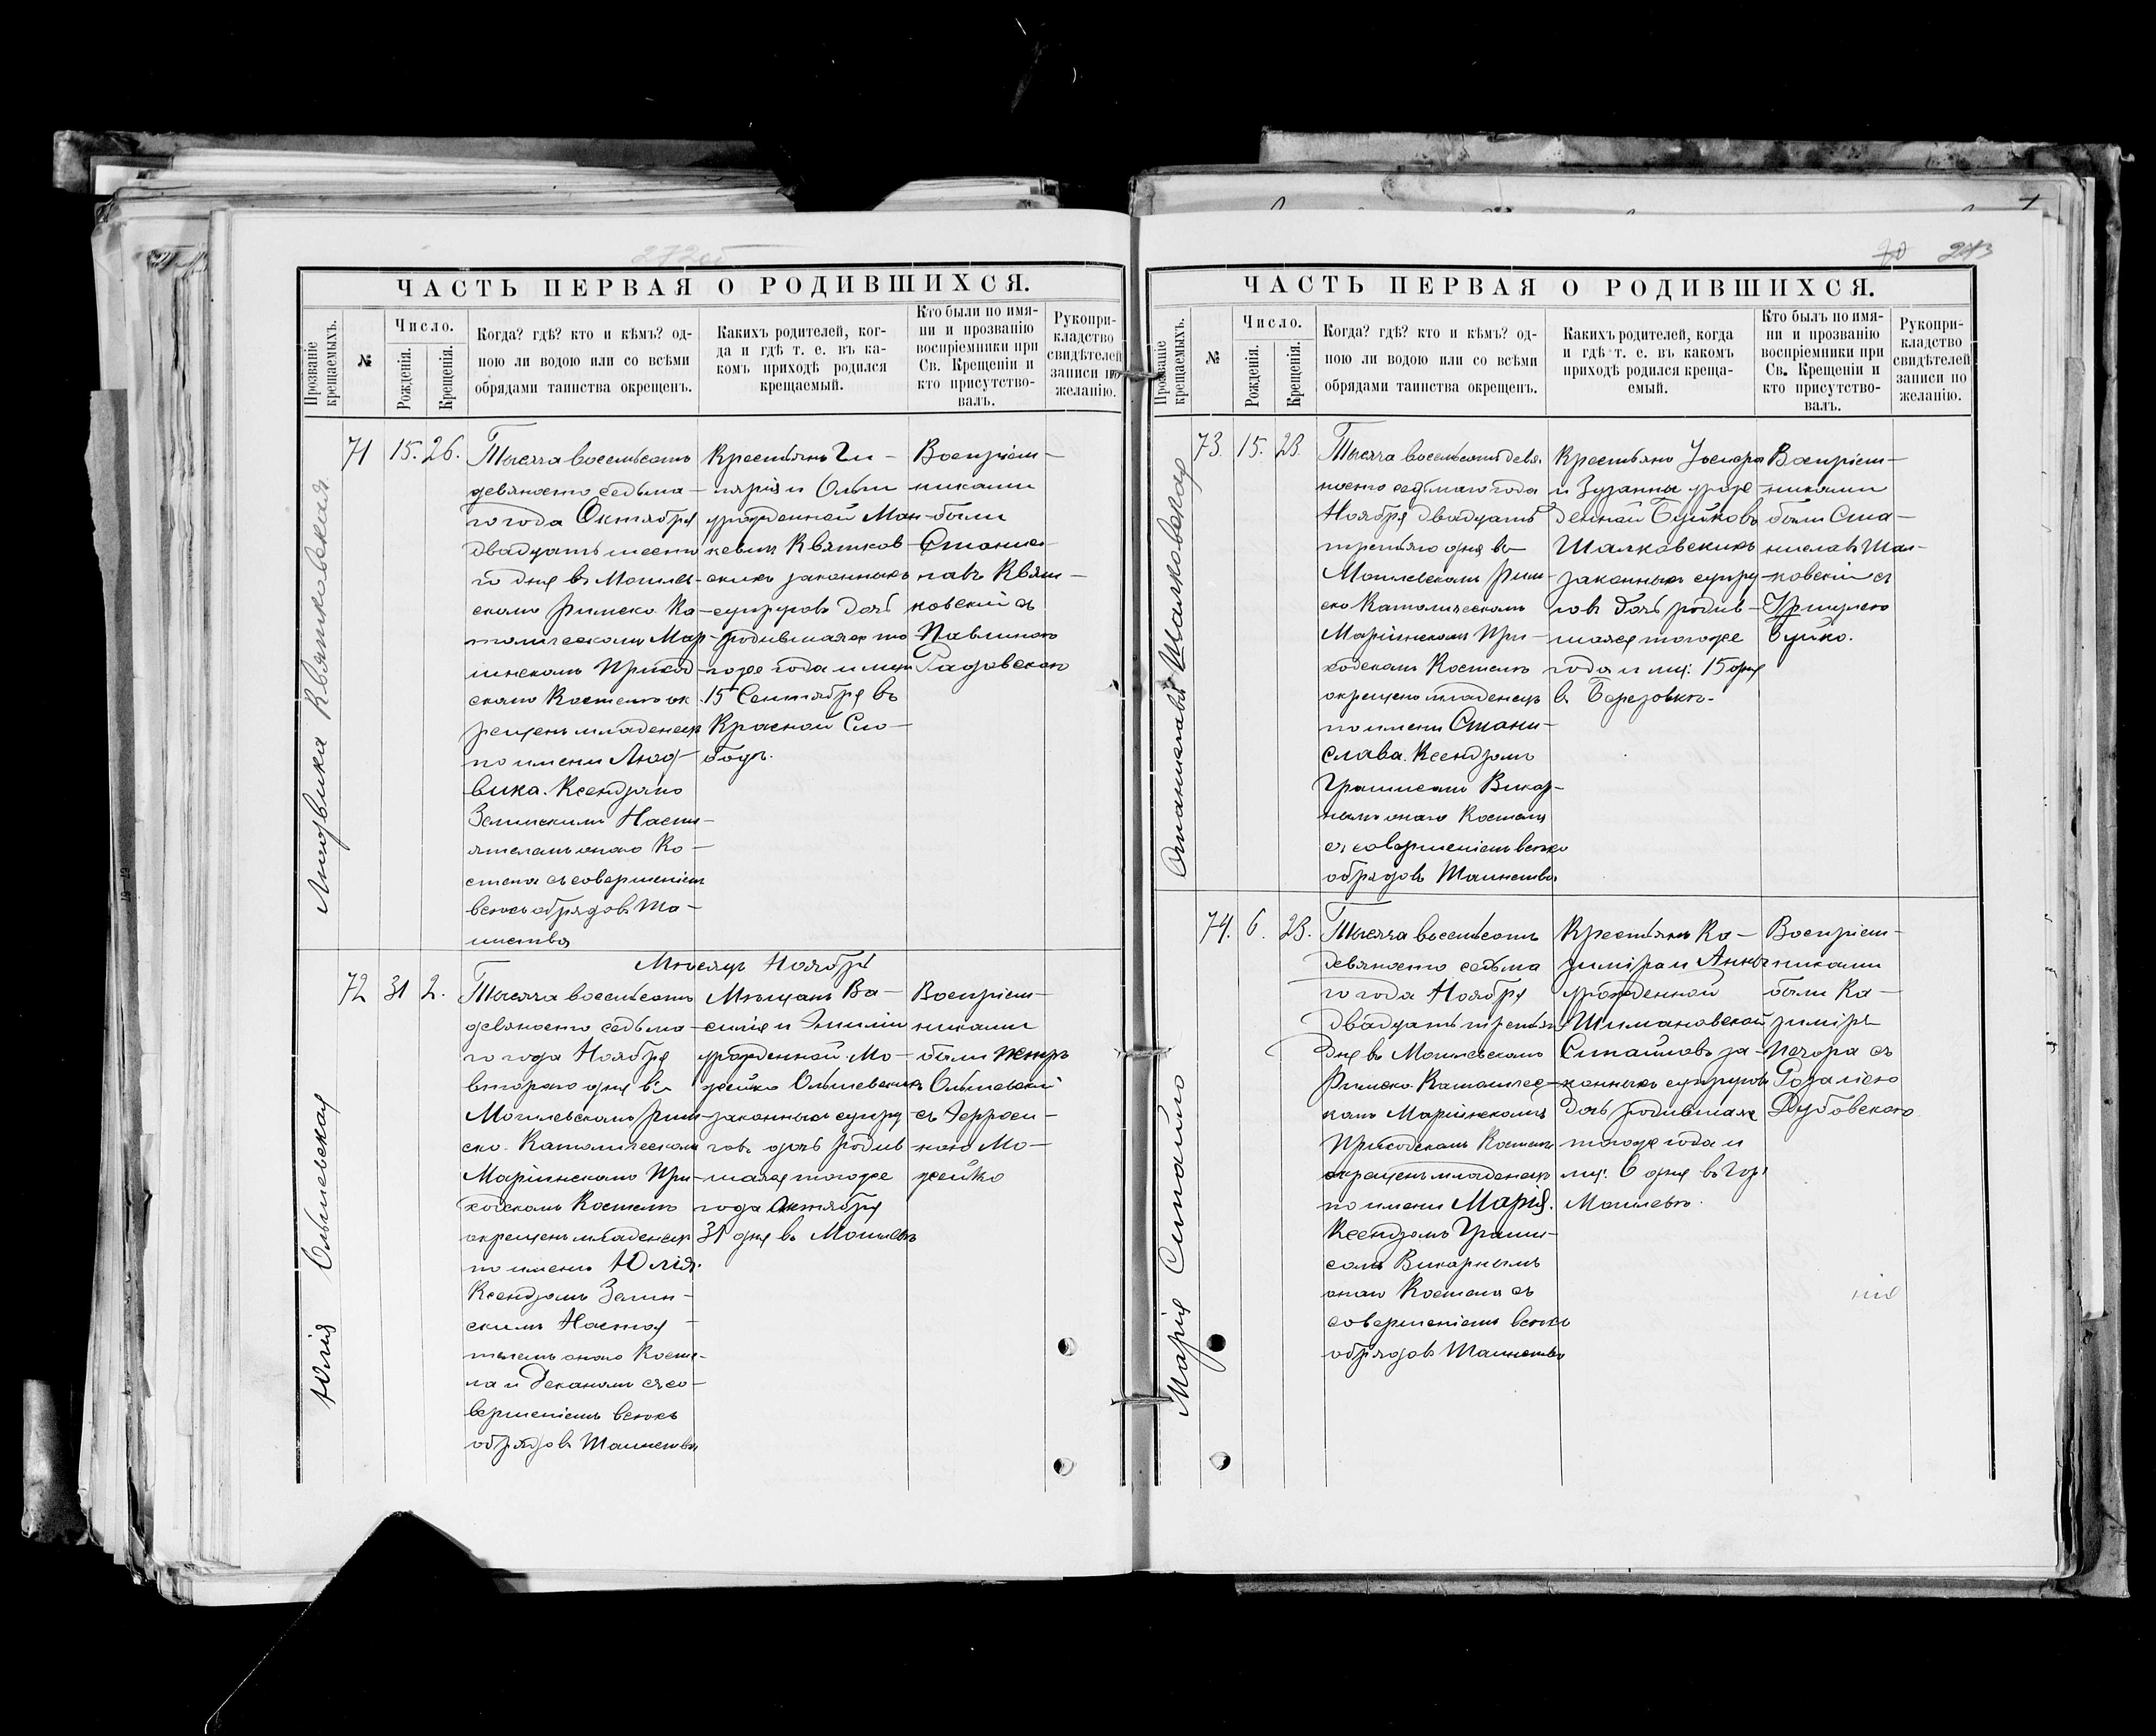 272об
ЧАСТЬ ПЕРВАЯ О РОДИВШИХСЯ.
Прозваніе крещаемыхъ.
№
Число.
Рожденія.
Крещенія.
Когда? гдѣ? кто и кѣмъ? од-
ною ли водою или со всѣми
обрядами таинства окрещенъ.
Какихъ родителей, ког-
да и гдѣ т. е. въ ка-
комъ приходѣ родился
крещаемый.
Кто были по имя-
ни и прозванію
воспріемники при
Св. Крещеніи и
кто присутство-
валъ.
Рукопри-
кладство
свидѣтелей
записи по
желанію.
Людвика Квятковская
71
15.
26.
Тысяча восемьсотъ
девяносто седьма-
го года Октября
двадцать шесто
го дня въ Могилев-
скомъ Римско Ка-
толическомъ Мар-
іинскомъ Приход-
скомъ Костелѣ ок
рещенъ младенецъ
по имени Люд-
вика. Ксендзомъ
Насто-
ятелемъ онаго Ко-
стела съ совершеніемъ
всѣхъ обрядовъ Та-
инства
Крестьянъ Ги-
ларія и Ольги
урожденной Ман-
кевичъ Квятков-
скихъ законныхъ
супруговъ дочь
родившаяся то
гоже года и мца
15 Сентября въ
Красной Сло-
бодѣ.
Воспріем-
никами
были
Станис-
лавъ Квят-
ковскій съ
Павлиною
Мѣсяцъ Ноябрь
Юлія Ольшевская
72
31
2.
Тысяча восемьсотъ
девяносто седьма-
го года Ноября
второго дня въ
Могилевскомъ Рим-
ско-Католическомъ
Маріинскомъ При-
ходскомъ Костелѣ
окрещенъ младенецъ
по имени Юлія.
Ксендзомъ
скимъ Настоя-
телемъ онаго Косте-
ла и Деканомъ съ со-
вершеніемъ всѣхъ
обрядовъ Таинства
Мѣщанъ Ва-
силія и Эмиліи
урожденной Мо-
жейко Ольшевскихъ
законныхъ супру-
говъ дочь родив
шаяся тогоже
года Октября
31 дня въ Могилевѣ
Воспріем-
никами
были
Ольшевскій
съ
Мо-
жейко
70 273
ЧАСТЬ ПЕРВАЯ О РОДИВШИХСЯ.
Прозваніе крещаемыхъ.
№
Число.
Рожденія.
Крещенія.
Когда? гдѣ? кто и кѣмъ? од-
ною ли водою или со всѣми
обрядами таинства окрещенъ.
Какихъ родителей, когда
и гдѣ т. е. въ какомъ
приходѣ родился креща-
емый.
Кто былъ по имя-
ни и прозванію
воспріемники при
Св. Крещеніи и
кто присутство-
валъ.
Рукопри-
кладство
свидѣтелей
записи по
желанію.
Станислава Шалковская
73.
15.
23.
Тысяча восемьсотъ девя-
носто седьмаго года
Ноября двадцать
третьяго дня въ
Могилевскомъ Рим-
ско Католическомъ
Маріинскомъ При-
ходскомъ Костелѣ
окрещенъ младенецъ
по имени Стани-
слава. Ксендзомъ
Викар-
нымъ онаго Костела
съ совершеніемъ всѣхъ
обрядовъ Таинства
Крестьянъ
и Зузанны урож-
денной Буйковъ
Шалковскихъ
законныхъ супру-
говъ дочь родив-
шаяся тогоже
года и мц: 15 дня
въ Березовкѣ.
Воспріем-
никами
были Ста-
ниславъ Шал-
ковскій съ
Буйко.
Марія Ситайло
74.
6.
23.
Тысяча восемьсотъ
девяносто седьма
го года Ноября
двадцать третьяго
дня въ Могилевскомъ
Римско-Католичес-
комъ Маріинскомъ
Приходскомъ Костелѣ
окрещенъ младенецъ
по имени Марія.
Ксендзомъ
Викарнымъ
онаго Костела съ
совершеніемъ всѣхъ
обрядовъ Таинства
Крестьянъ Ка-
зиміра и Анны
урожденной
Шимановской
законныхъ супруговъ
дочь родившаяся
тогоже года и
мц: 6 дня въ гор:
Могилевѣ.
Воспріем-
никами
были Ка-
зиміръ
Печора съ
Розаліею
Дубовскою